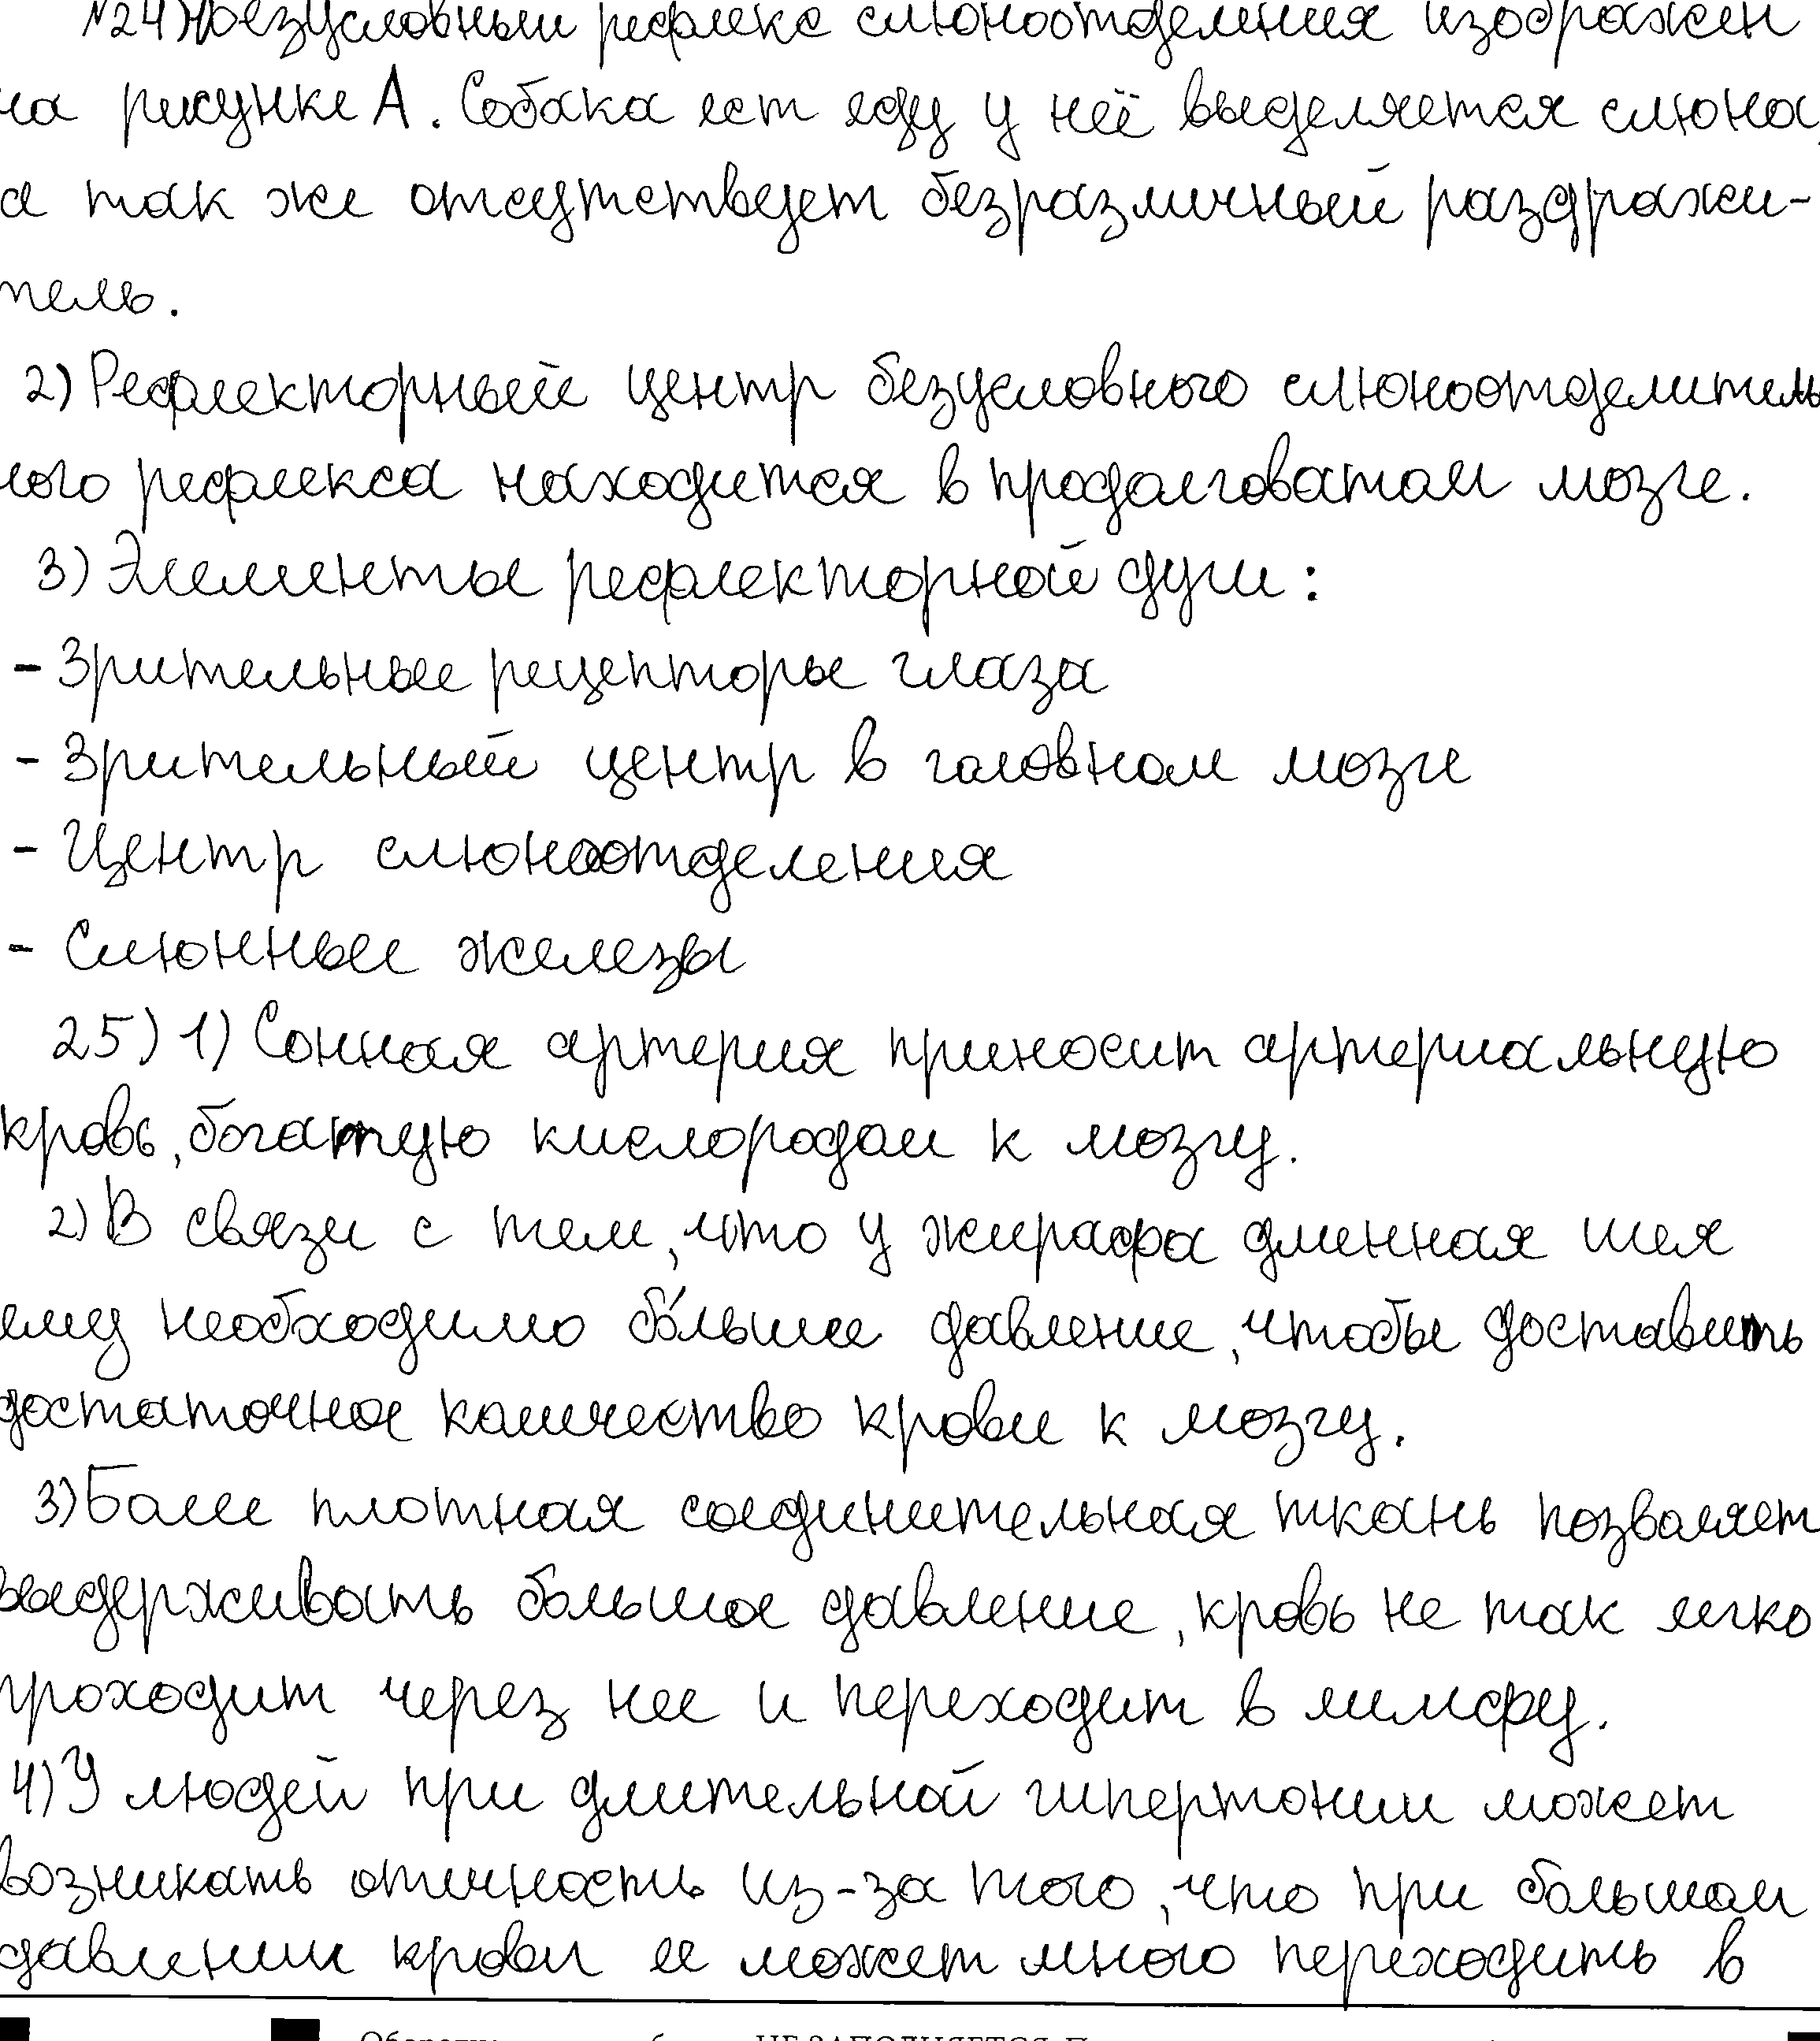 №24) Безусловный рефлекс слюноотделения изображен
на рисунке А. Собака ест еду у неё выделяется слюна,
а так же отсутствует безразличный раздражи-
тель.
2) Рефлекторный центр безусловного слюноотделитель
ного рефлекса находится в продолговатом мозге.
3) Элементы рефлекторной дуги:
- Зрительные рецепторы глаза
- Зрительный центр в головном мозге
- Центр слюноотделения
- Слюнные железы
25) 1) Сонная артерия приносит артериальную
кровь, богатую кислородом к мозгу.
2) В связи с тем, что у жирафа длинная шея
ему необходимо бо́льшее давление, чтобы доставить
достаточное количество крови к мозгу.
3) Более плотная соединительная ткань позволяет
выдерживать большое давление, кровь не так легко
проходит через нее и переходит в лимфу.
4) У людей при длительной гипертонии может
возникать отечность из-за того, что при большом
давлении крови ее может много переходить в
НЕ ЗАПОЛНЯЕТСЯ